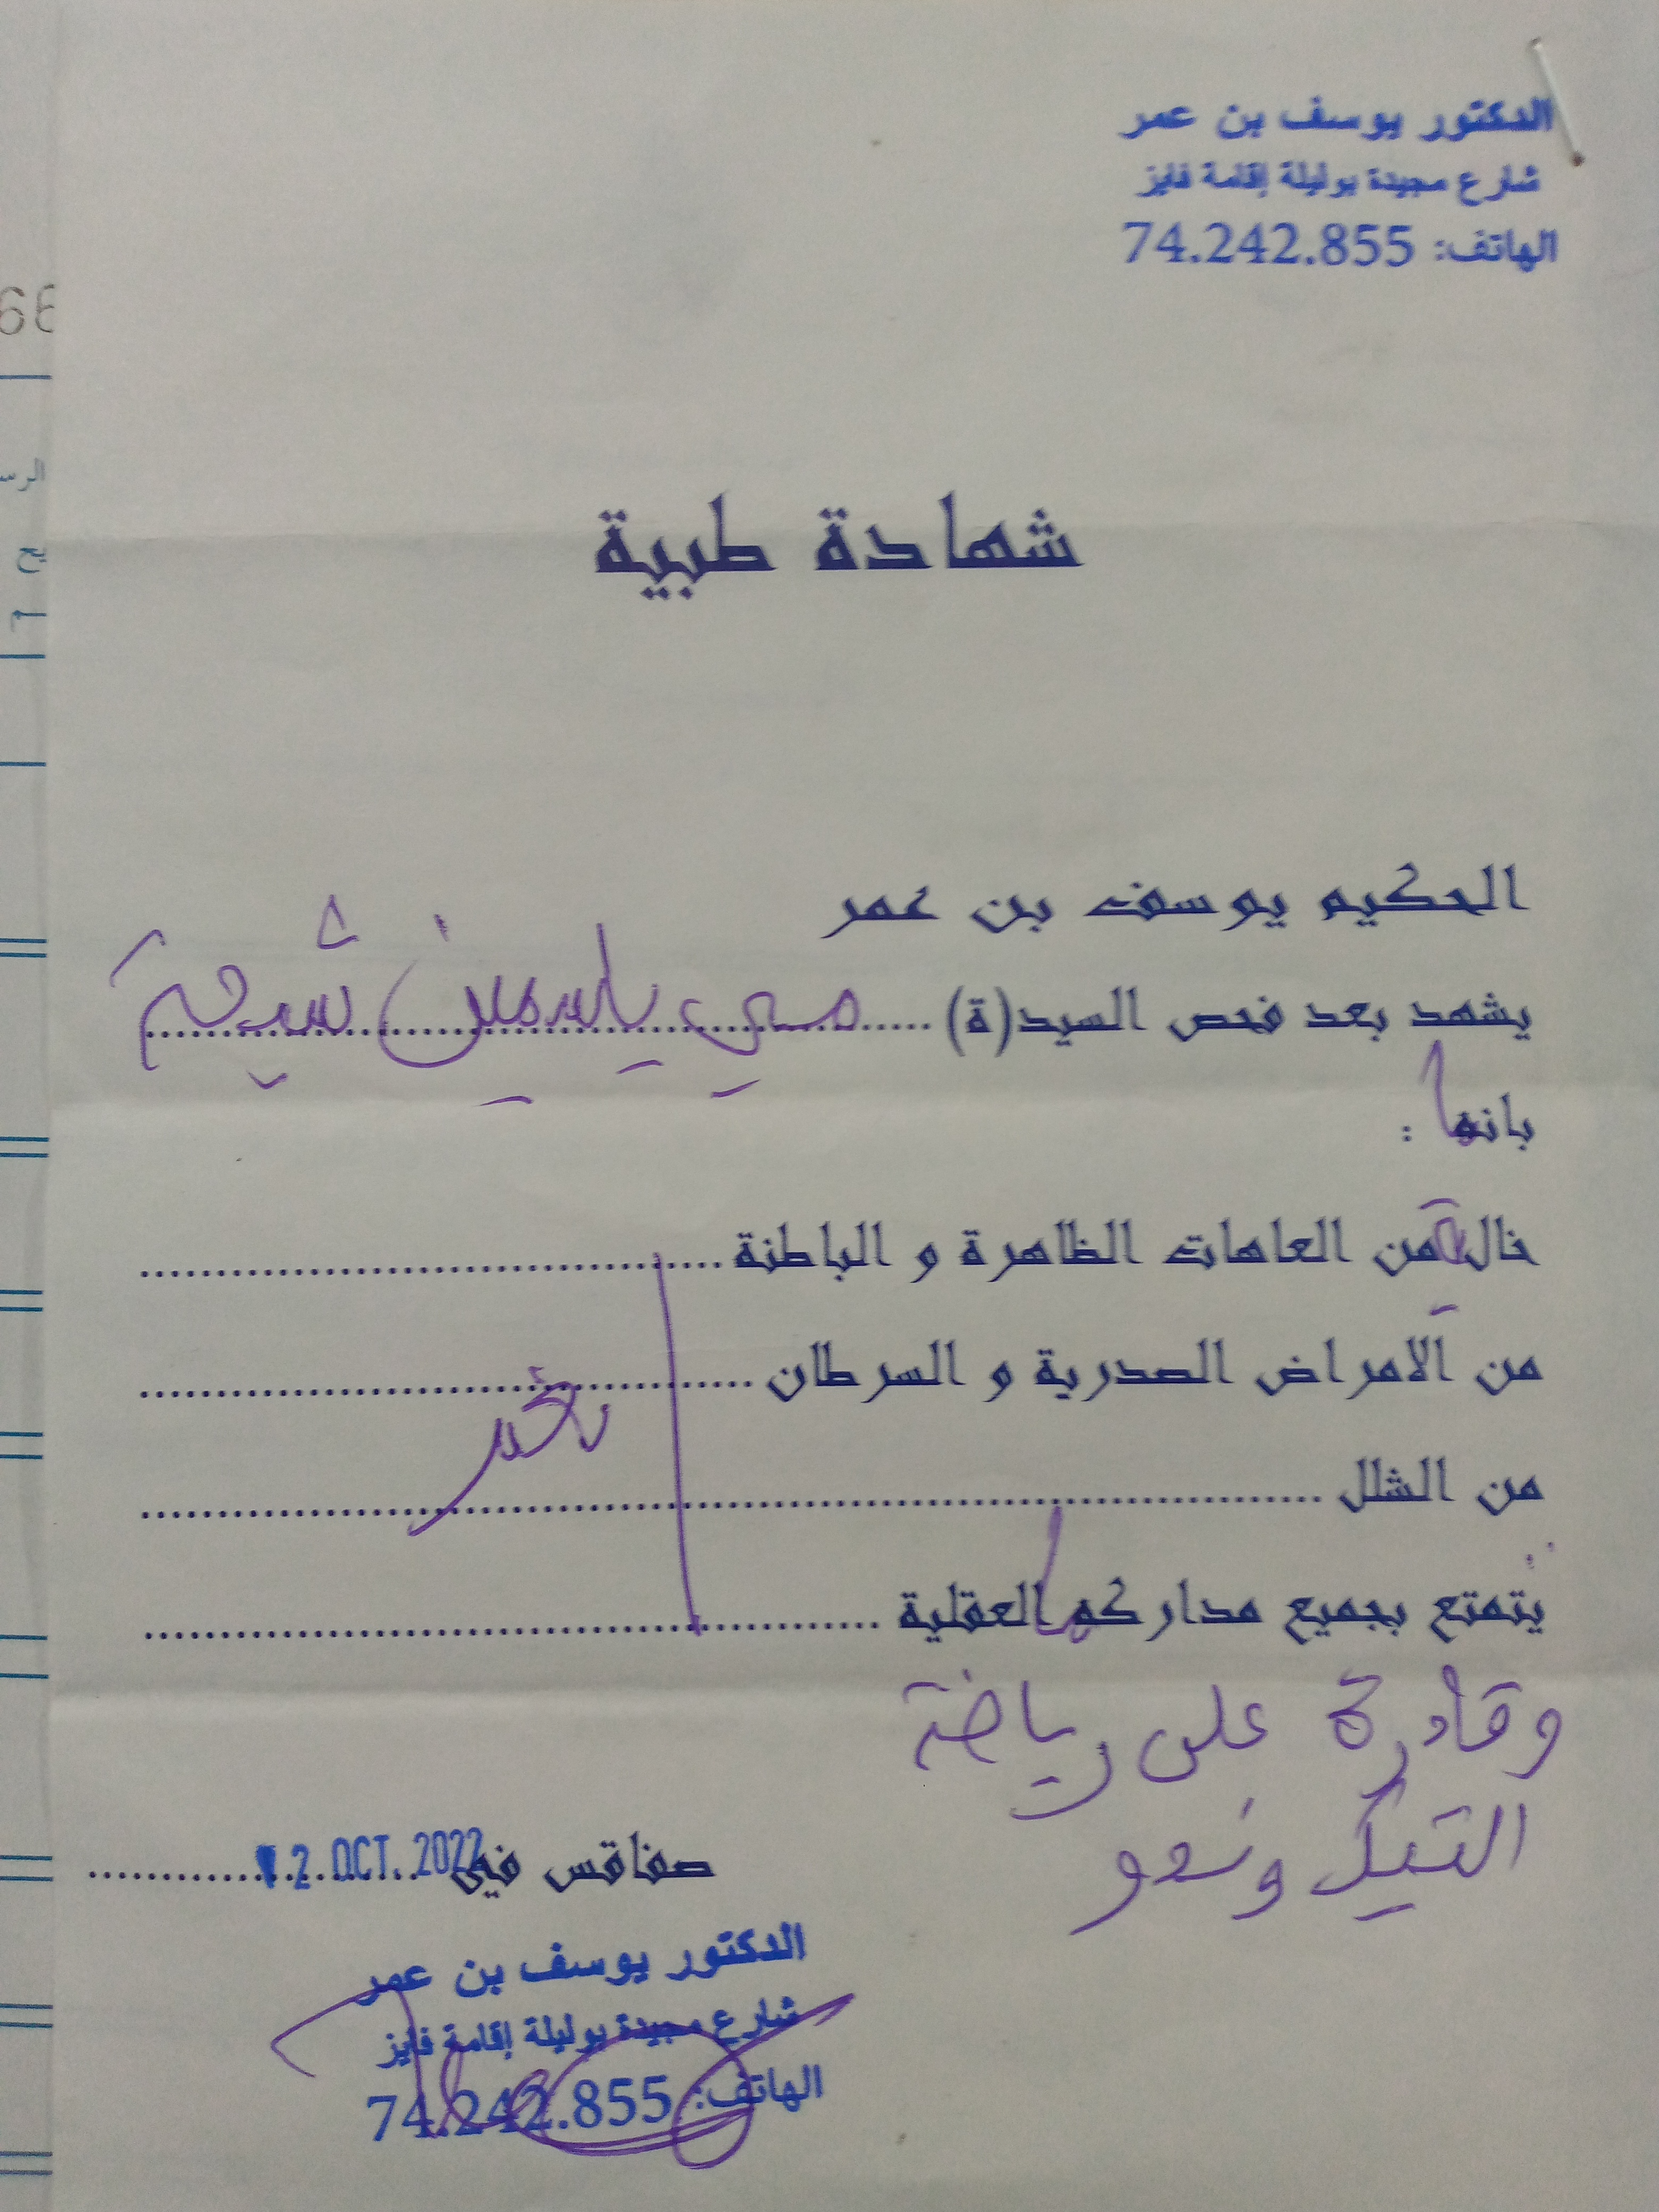 الدكتور يوسف بن عمر
شارع مجيدة بوليلة إقامة فايز
الهاتف: 74.242.855
شهادة طبية
الحكيم يوسف بن عمر
يشهد بعد فحص السيد(ة) ..... مي ياسمين شيحة
بانها :
خالية من العاهات الظاهرة و الباطنة
من الامراض الصدرية و السرطان
من الشلل
يتمتع بجميع مداركها العقلية
وقادرة على رياضة
التيكوندو
صفاقس في 2 OCT. 2022
الدكتور يوسف بن عمر
شارع مجيدة بوليلة إقامة فايز
الهاتف: 74.242.855